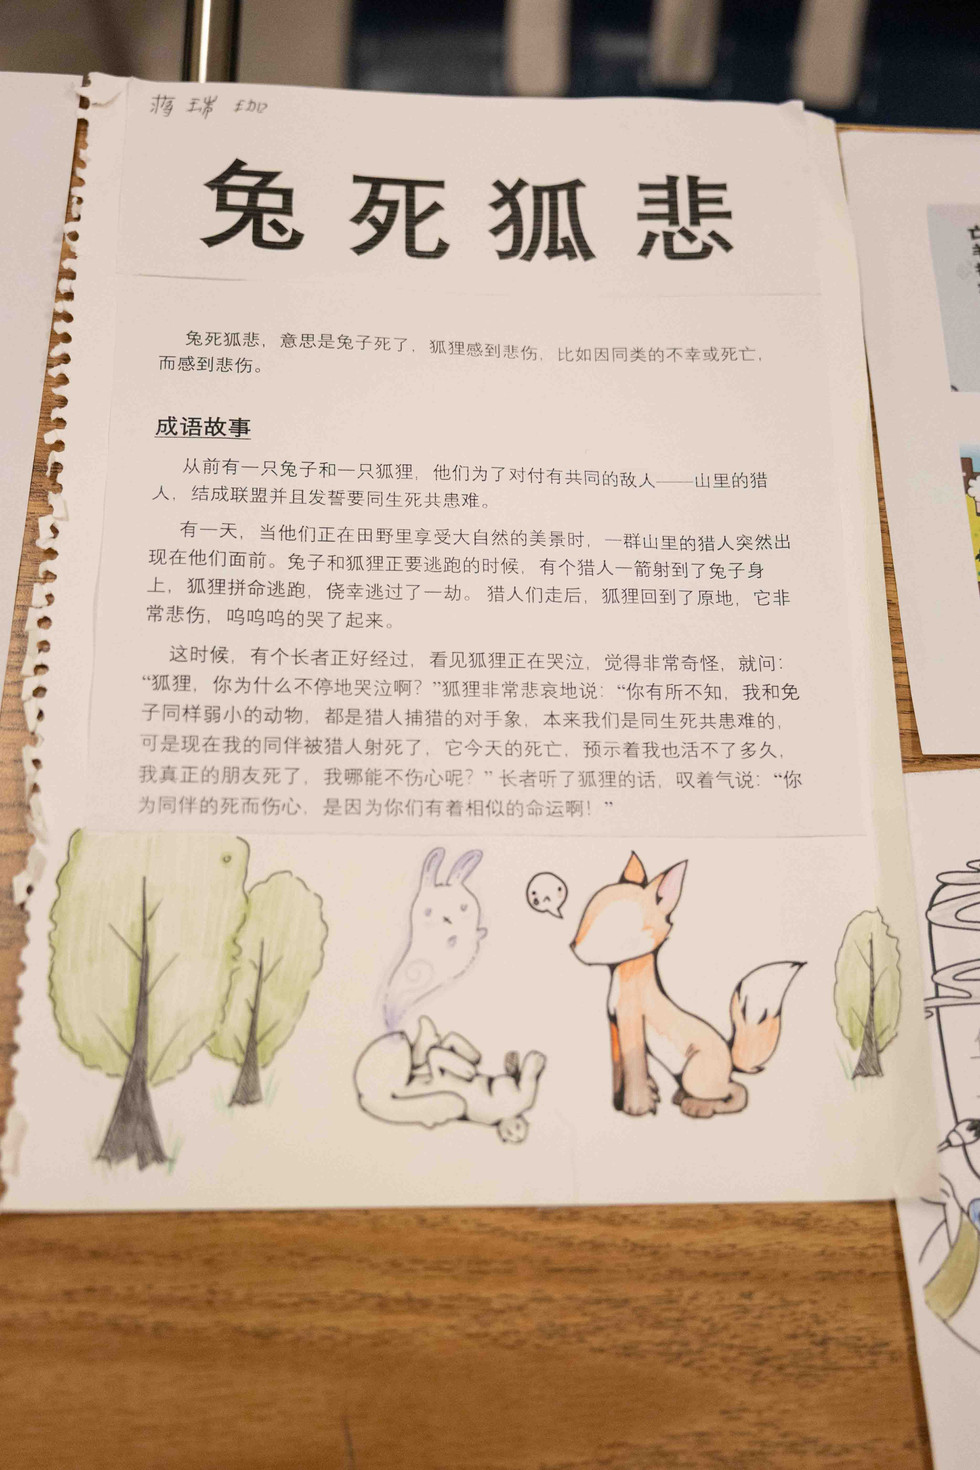 蒋 瑞 珈
兔死狐悲
兔死狐悲，意思是兔子死了，狐狸感到悲伤，比如因同类的不幸或死亡，
而感到悲伤。
成语故事
从前有一只兔子和一只狐狸，他们为了对付有共同的敌人——山里的猎
人，结成联盟并且发誓要同生死共患难。
有一天，当他们正在田野里享受大自然的美景时，一群山里的猎人突然出
现在他们面前。兔子和狐狸正要逃跑的时候，有个猎人一箭射到了兔子身
上，狐狸拼命逃跑，侥幸逃过了一劫。 猎人们走后，狐狸回到了原地，它非
常悲伤，呜呜呜的哭了起来。
这时候，有个长者正好经过，看见狐狸正在哭泣，觉得非常奇怪，就问：
“狐狸，你为什么不停地哭泣啊？”狐狸非常悲哀地说：“你有所不知，我和兔
子同样弱小的动物，都是猎人捕猎的对手象，本来我们是同生死共患难的，
可是现在我的同伴被猎人射死了，它今天的死亡，预示着我也活不了多久，
我真正的朋友死了，我哪能不伤心呢？” 长者听了狐狸的话，叹着气说：“你
为同伴的死而伤心，是因为你们有着相似的命运啊！”